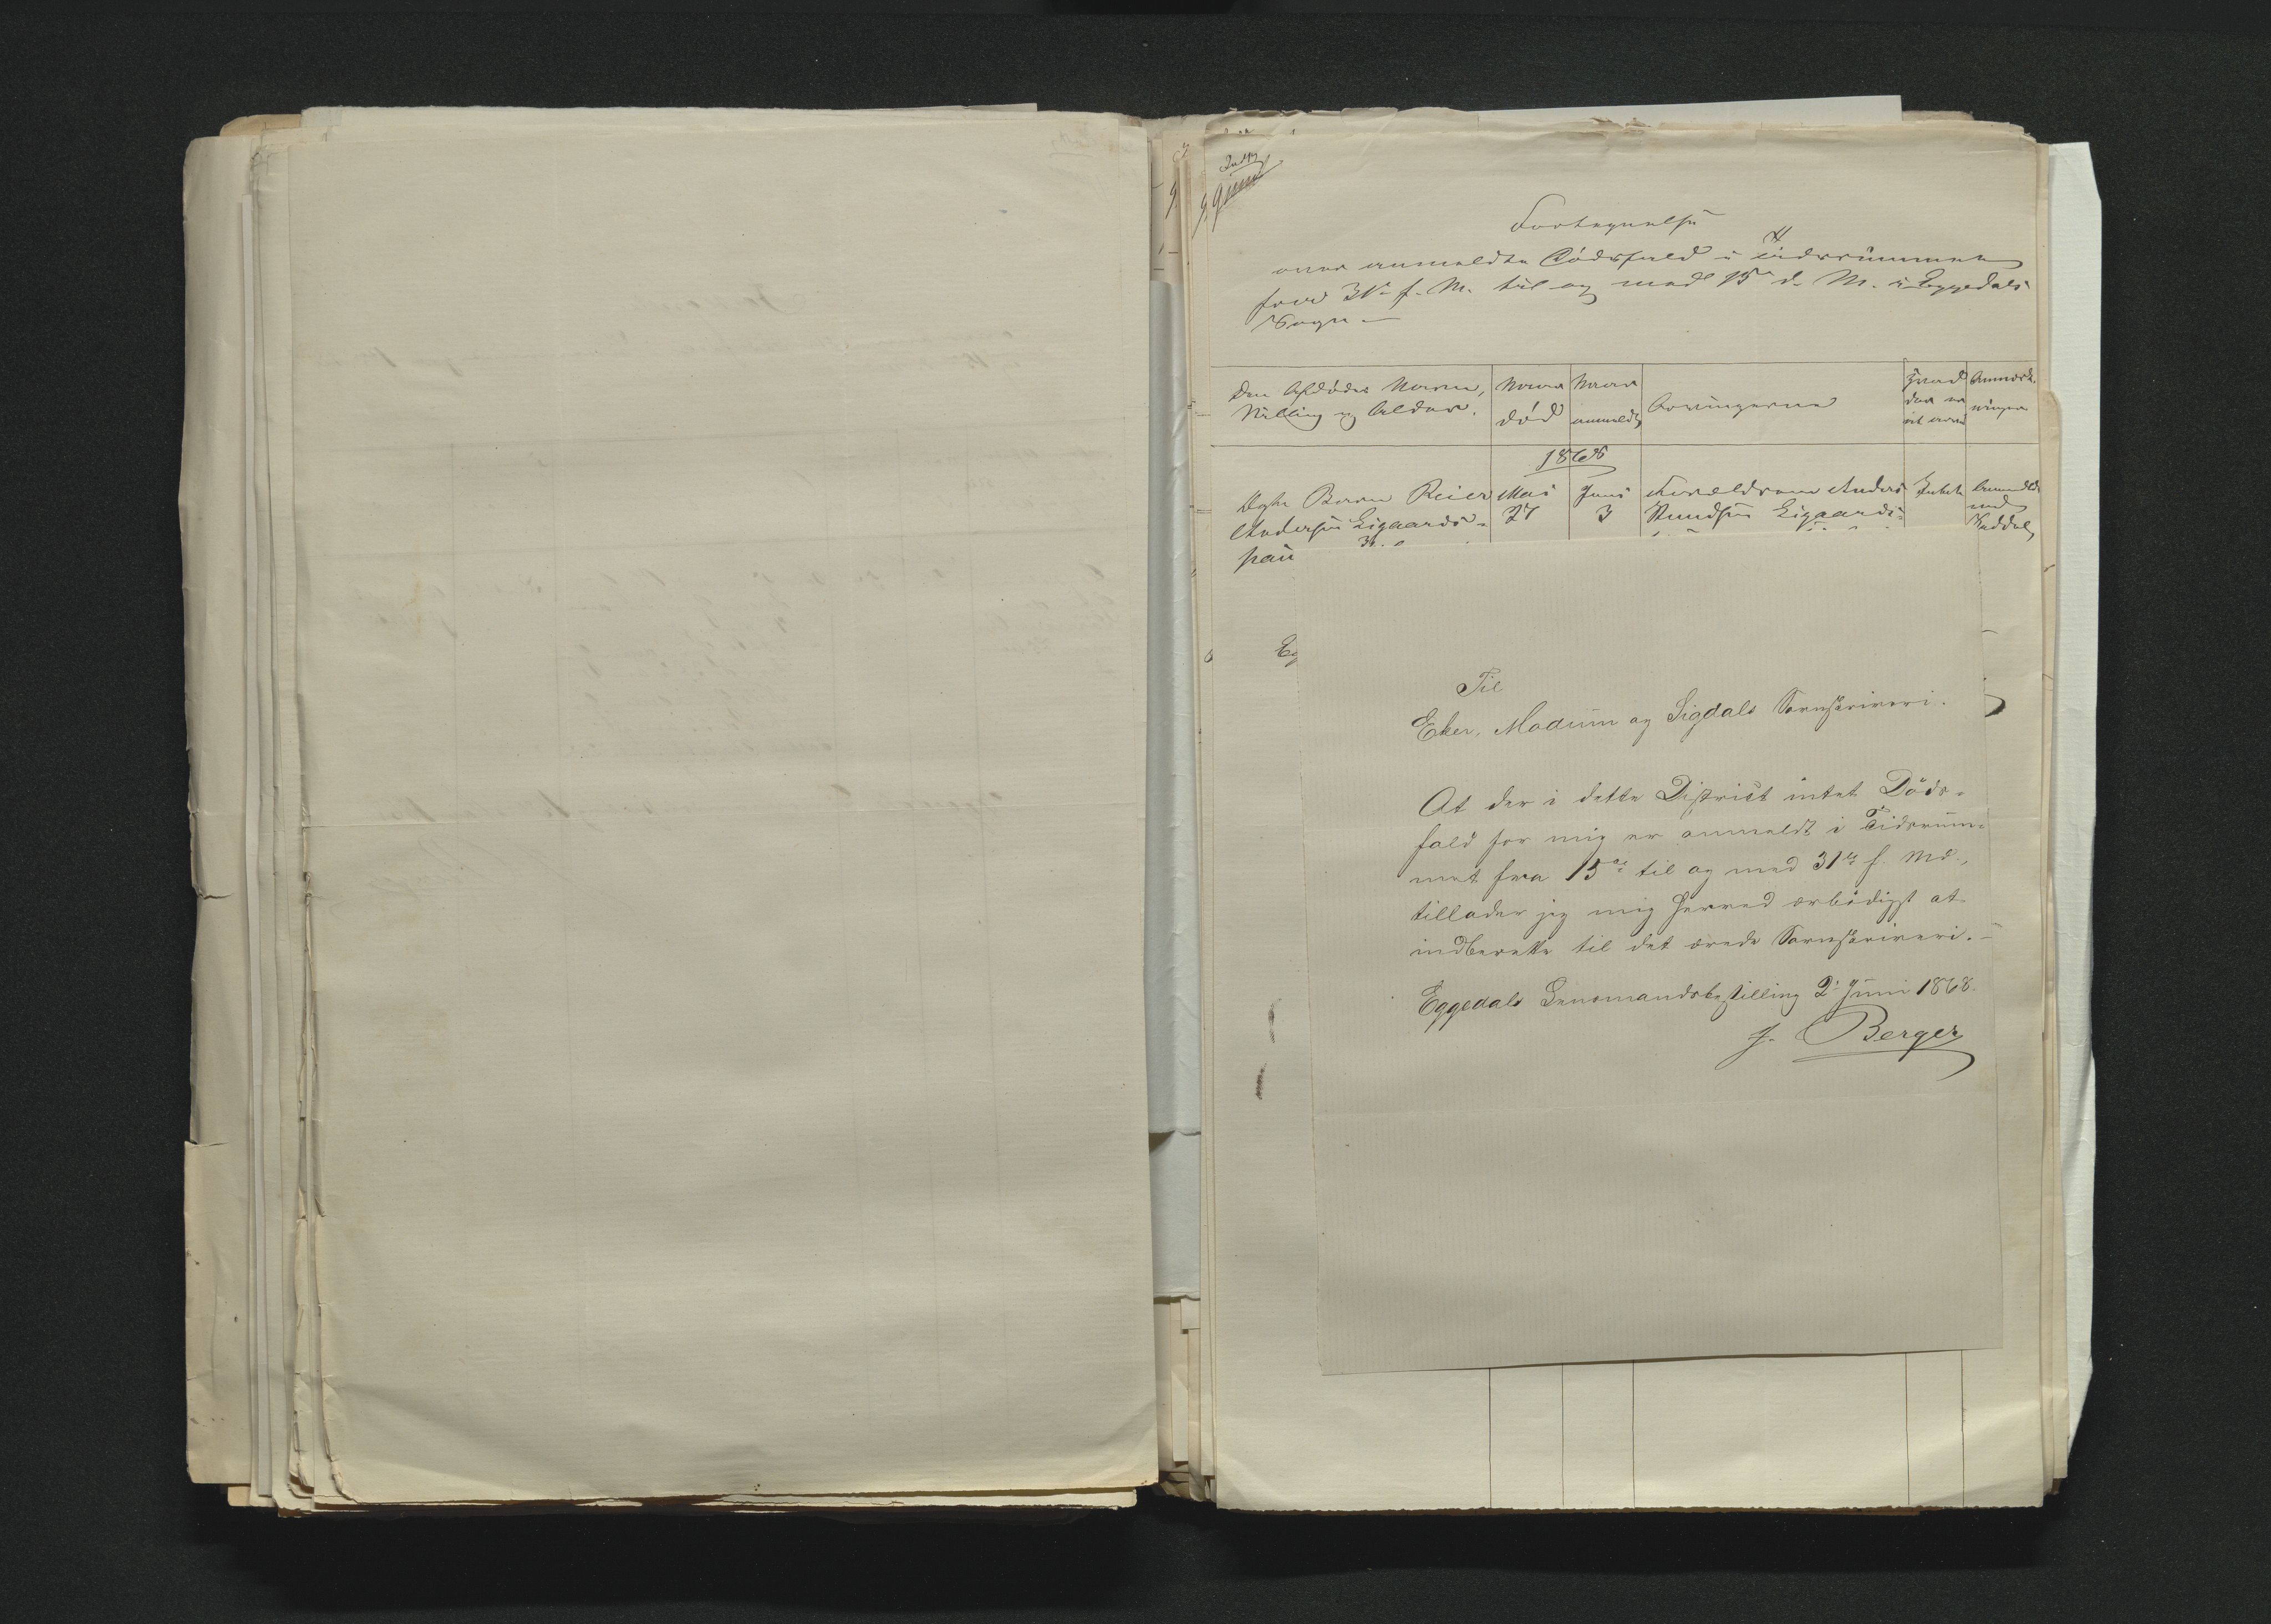 Fortegnelse
over anmeldte Dödsfald i Tidsrummet
fra 31te f. M. til og med 15de d. M. i Eggedals
Sogn
Den Afdødes Navn,
Stilling og Alder.
Naar
död
Naar
anmeldt
Arvingerne
Hvad
der er
Anmærk-
ninger
1868
Ægte Barn Reier
Andersen Eigaards-
Mai
27
Juni
3
Forældrene Anders
Knudsen Eigaards-
Intet
Anmeldt
ved
Seddel
Eg
Til
Eker, Modum og Sigdals Sorenskriveri.
At der i dette District intet Döds-
fald for mig er anmeldt i Tidsrum-
met fra 15de til og med 31te f. Md.,
tillader jeg mig herved ærbödigst at
indberette til det ærede Sorenskriveri.-
Eggedals Lensmandsbestilling 2. Juni 1868.
J. Berger